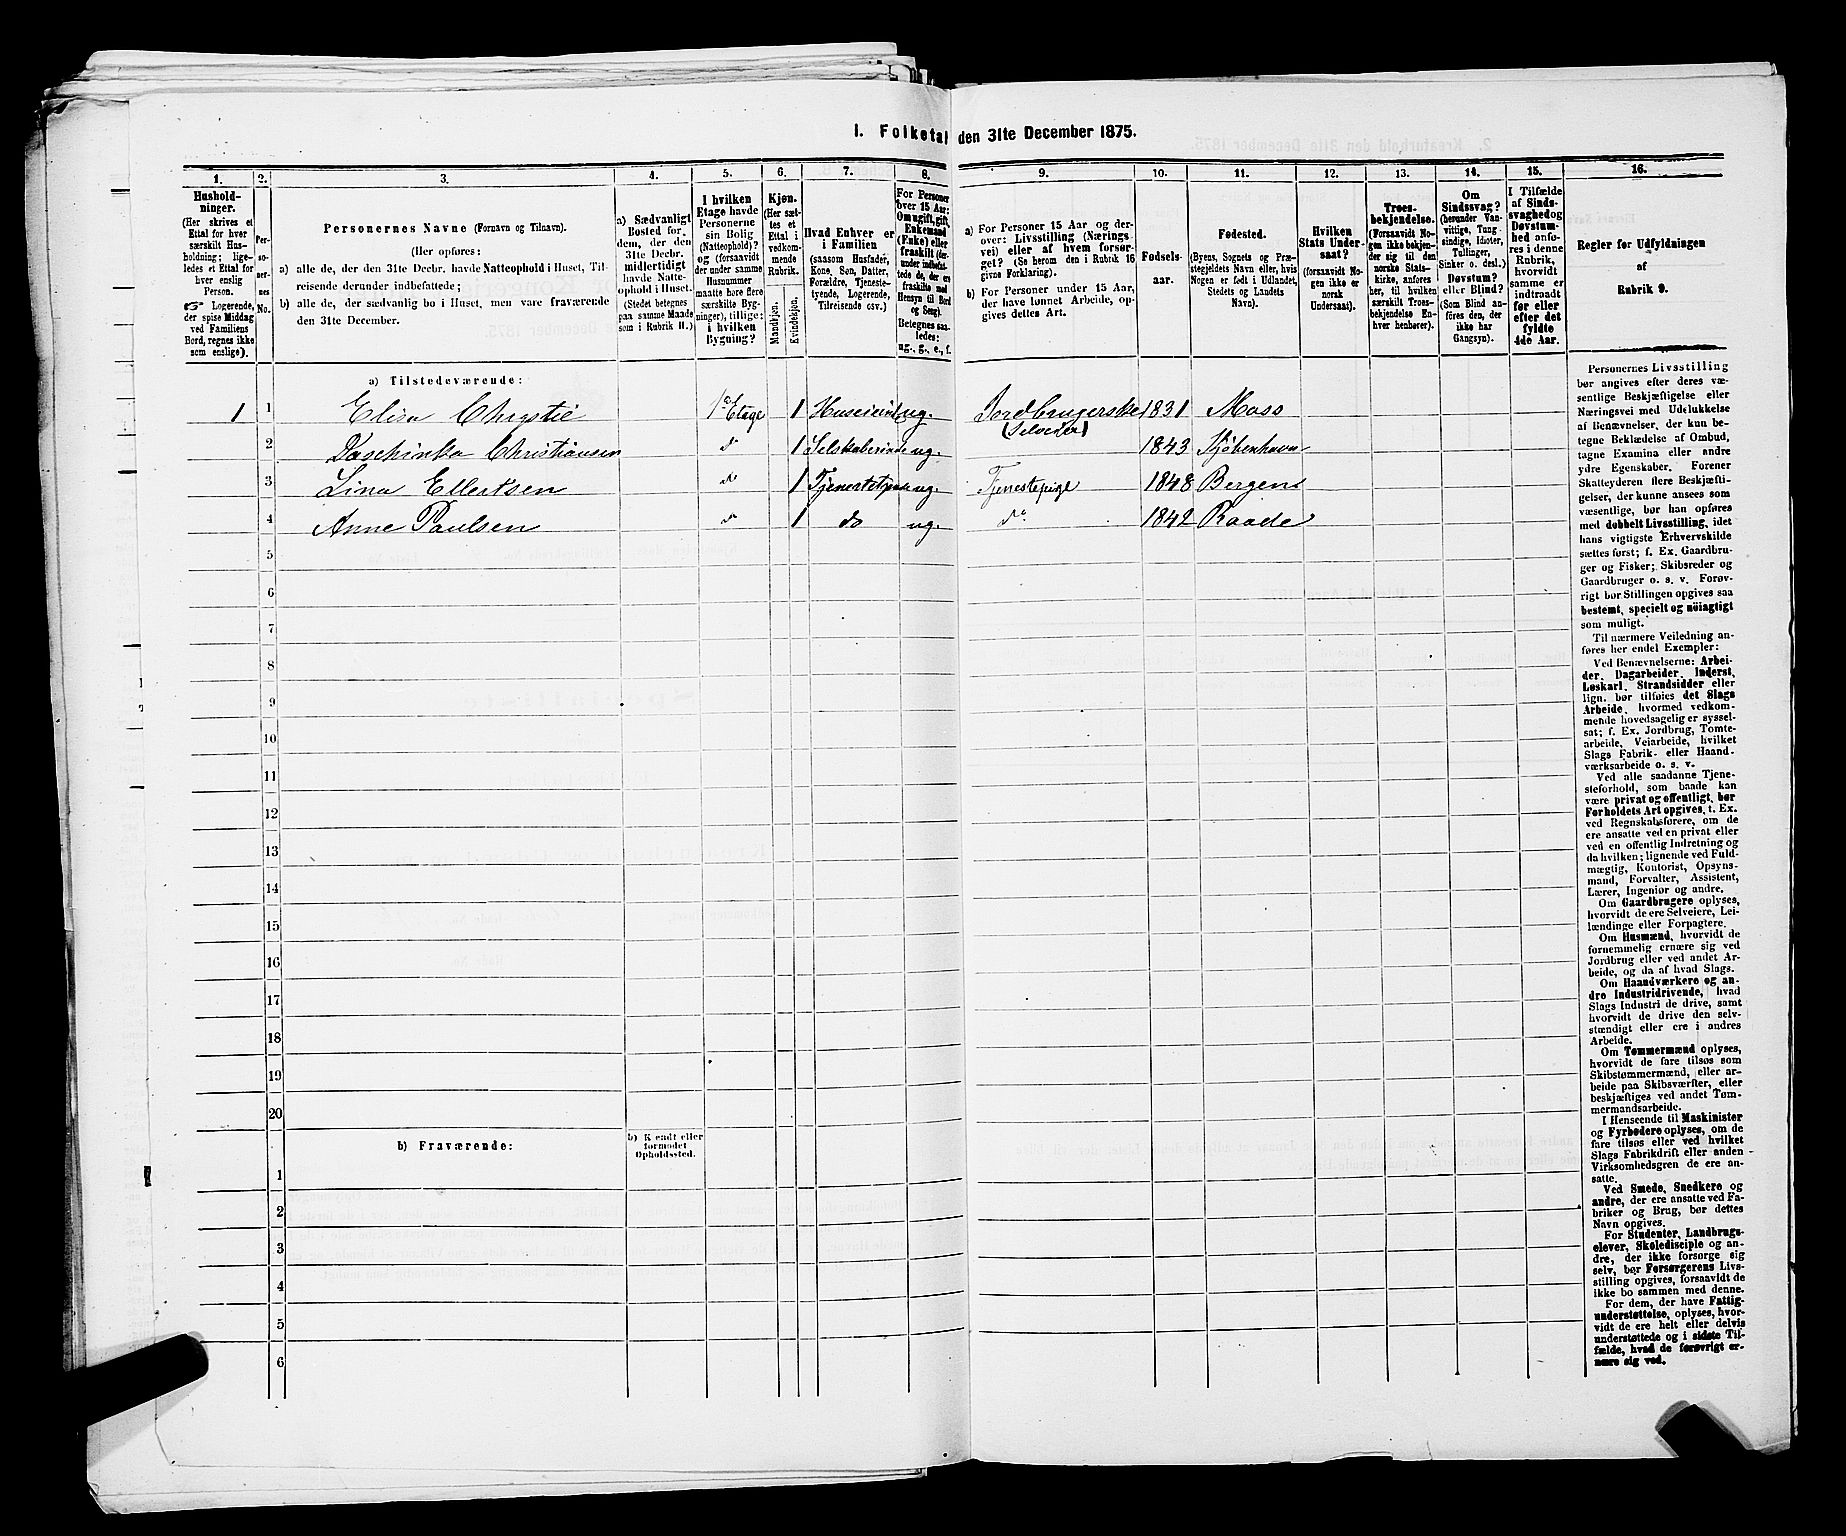 I. Folketal den 31te December 1875.
1. 2. 3. 4. 5. 6. 7. 8. 9. 10. 11. 12. 13. 14. 15. 16.
Hushold-
ninger.
(Her skrives et
Ettal for hver
særskilt Hus-
holdning; lige-
ledes et Ettal for
hver enslig
Person.
☞ Logerende,
der spise Middag
ved Familiens
Bord, regnes ikke
som enslige).
Per-
so-
ner-
nes
No.
Personernes Navne (Fornavn og Tilnavn).
(Her opføres:
a) alle de, der den 31te Decbr. havde Natteophold i Huset, Til-
reisende derunder indbefattede;
b) alle de, der sædvanlig bo i Huset, men vare fraværende
den 31te December.
a) Sædvanligt
Bosted for
dem, der den
31te Decbr.
midlertidigt
havde Natte-
ophold i Huset.
(Stedet betegnes
paa samme Maade
som i Rubrik 11.)
I hvilken
Etage havde
Personerne
sin Bolig
(Natteophold)?
og (forsaavidt
der under samme
Husnummer
maatte høre flere
særskilte Byg-
ninger), tillige:
i hvilken
Bygning?
Kjøn.
(Her sæt-
tes et
Ettal i
vedkom-
mende
Rubrik.
Mandkjøn.
Kvindekjøn.
Hvad Enhver er
i Familien
(saasom Husfader,
Kone, Søn, Datter,
Forældre, Tjeneste-
tyende, Logerende,
Tilreisende osv.)
For Personer
over 15 Aar:
Om ugift, gift,
Enkemand
(Enke) eller
fraskilt (der-
under indbefat-
tede de, der ere
fraskilte med
Hensyn til Bord
og Seng).
Betegnes saa-
ledes:
ug., g., e., f.
a) For Personer 15 Aar og der-
over: Livsstilling (Nærings-
vei) eller af hvem forsør-
get? (Se herom den i Rubrik 16
givne Forklaring).
b) For Personer under 15 Aar,
der have lønnet Arbeide, op-
gives dettes Art.
Fødsels-
aar.
Fødested.
(Byens, Sognets og Præ-
stegjeldets Navn eller, hvis
Nogen er født i Udlandet,
Stedets og Landets
Navn).
Hvilken
Stats Under-
saat?
(forsaavidt No-
gen ikke er
norsk
Undersaat).
Troes-
bekjendelse.
(Forsaavidt No-
gen ikke bekjen-
der sig til den
norske Stats-
kirke, anføres
her, til hvilken
særskilt Troes-
bekjendelse En-
hver henhører).
Om
Sindssvag?
(herunder Van-
vittige, Tung-
sindige, Idioter,
Tullinger,
Sinker o. desl.)
Døvstum?
eller Blind?
(Som Blind an-
føres den, der
ikke har
Gangsyn).
I Tilfælde
af Sinds-
svaghed og
Døvstum-
hed anfø-
res i denne
Rubrik,
hvorvidt
samme er
indtraadt
før eller
efter det
fyldte
4de Aar.
Regler for Udfyldningen
af
Rubrik 9.
a) Tilstedeværende:
1 1 Elisa Chrystie 1ste Etage 1 Huseierinde ug. Jordbrugerske 1831 Moss
(Selveier)
2 Daschinka Christiansen do 1 Selskaberinde ug. 1843 Kjøbenhavn
3 Lina Ellertsen do 1 Tjenestetyende ug. Tjenestepige 1848 Bergens
4 Anne Paulsen do 1 do ug. do 1842 Raade
5
6
7
8
9
10
11
12
13
14
15
16
17
18
19
20
b) Fraværende:
b) Kjendt eller
formodet
Opholdssted.
1
2
3
4
5
6
Personernes Livsstilling
bør angives efter deres væ-
sentlige Beskjæftigelse eller
Næringsvei med Udelukkelse
af Benævnelser, der kun be-
tegne Beklædelse af Ombud,
tagne Examina eller andre
ydre Egenskaber. Forener
Skatteyderen flere Beskjæfti-
gelser, der kunne ansees som
væsentlige, bør han opføres
med dobbelt Livsstilling, idet
hans vigtigste Erhvervskilde
sættes først; f. Ex. Gaardbru-
ger og Fisker; Skibsreder og
Gaardbruger o. s. v. Forøv-
rigt bør Stillingen opgives saa
bestemt, specielt og nøiagtigt
som muligt.
Til nærmere Veiledning an-
føres her endel Exempler:
Ved Benævnelserne: Arbei-
der, Dagarbeider, Inderst,
Løskarl, Strandsidder eller
lign. bør tilføies det Slags
Arbeide, hvormed vedkom-
mende hovedsagelig er syssel-
sat; f. Ex. Jordbrug, Tomte-
arbeide, Veiarbeide, hvilket
Slags Fabrik- eller Haand-
værksarbeide o. s. v.
Ved alle saadanne Tjene-
steforhold, som baade kan
være privat og offentligt, bør
Forholdets Art opgives, t. Ex.
ved Regnskabsførere, om de
ere ansatte ved en privat eller
ved en offentlig Indretning og
da hvilken; lignende ved Fuld-
mægtig, Kontorist, Opsyns-
mand, Forvalter, Assistent,
Lærer, Ingeniør og andre.
Om Gaardbrugere oplyses,
hvorvidt de ere Selveiere, Lei-
lændinge eller Forpagtere.
Om Husmænd, hvorvidt de
fornemmelig ernære sig ved
Jordbrug eller ved andet Ar-
beide, og da af hvad Slags.
Om Haandværkere og an-
dre Industridrivende, hvad
Slags Industri de drive, samt
hvorvidt de drive den selv-
stændigt eller ere i andres
Arbeide.
Om Tømmermænd oplyses,
hvorvidt de fare tilsøs som
Skibstømmermænd, eller ar-
beide paa Skibsværfter, eller
beskjæftiges ved andet Tøm-
mermandsarbeide.
I Henseende til Maskinister
og Fyrbødere oplyses, om de
fare tilsøs eller ved hvilket
Slags Fabrikdrift eller anden
Virksomhedsgren de ere an-
satte.
Ved Smede, Snedkere og
andre, der ere ansatte ved Fa-
briker og Brug, bør dettes
Navn opgives.
For Studenter, Landbrugs-
elever, Skoledisciple og an-
dre, der ikke forsørge sig
selv, bør Forsørgerens Livs-
stilling opgives, forsaavidt de
ikke bo sammen med denne.
For dem, der have Fattig-
understøttelse, oplyses, hvor-
vidt de ere helt eller delvis
understøttede og i sidste Til-
fælde, hvad de forøvrigt er-
nære sig ved.